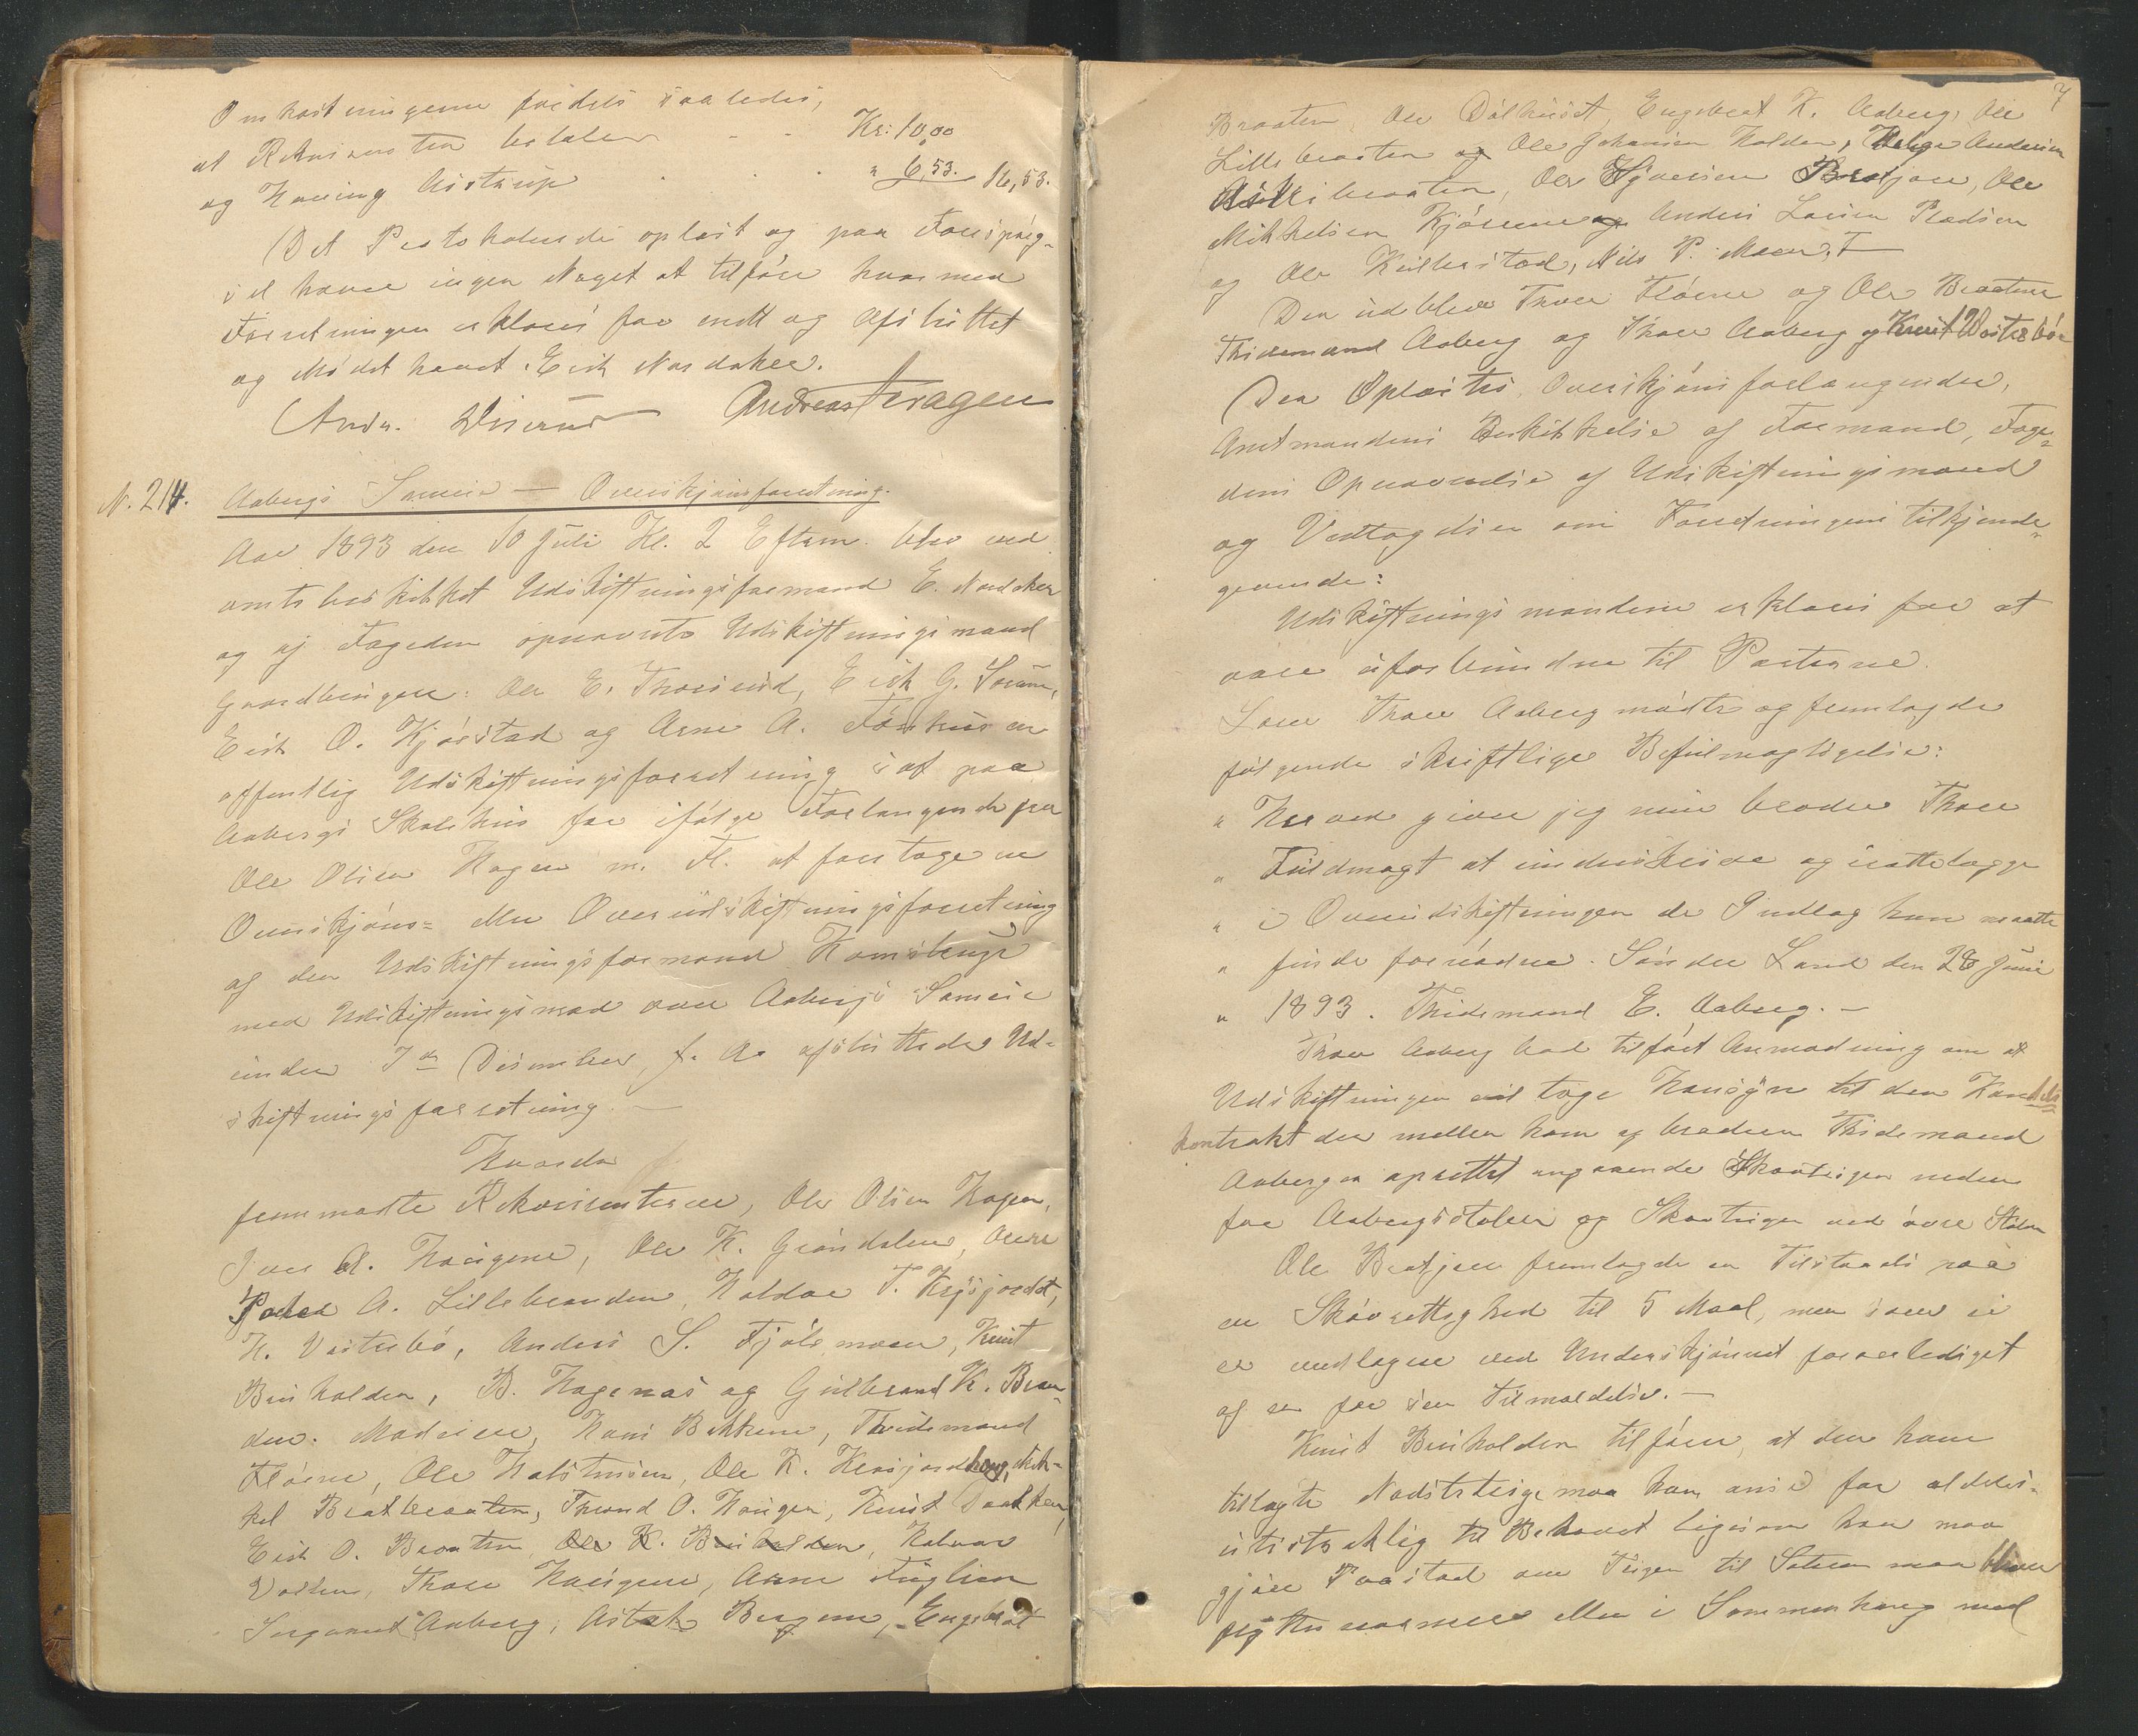 Omkostningerne fordels saaledes,
at Rekvirenten betaler - - Kr: 10,00
og Having Aistrup . . . " 6,53. 16,53.
Det Protokolerede oplæst og paa Forespørg-
sel havde ingen Noget at tilføre hvormed
Forretningen erklæres for endt og afsluttet
og Mødet hævet. Erik Nordaker.
Andr. Viserud Andreas Fragen
N. 214. Aabergs Sameie — Overskjønsforretning.
Aar 1893 den 10 Juli Kl. 2 Efterm. blev ved
amtsbeskikket Udskiftningsformand E. Nordaker
og af Fogeden opnævnte Udskiftningsmænd
Gaardbruger: Ole E. Thorsrud, Erik G. Sørum,
Erik O. Kjørstad og Arne A. Fønhus en
offentlig Udskiftningsforretning sat paa
Aabergs Skolehus for ifølge Forlangende fra
Ole Olsen Hagen m. Fl. at foretage en
Overskjøns- eller Overudskiftningsforretning
af den Udskiftningsformand Homshuge
med Udskiftningsmænd over Aabergs Sameie
under 7de Desember f. A. afsluttede Ud-
skiftningsforretning. —
Hvorda
fremmødte Rekvirenterne, Ole Olsen Hagen,
Iver A. Haugene, Ole K. Grøndalen,
Peder A. Lillebranden, Haldor T. Kjøsjordet,
K. Vesterbø, Anders S. Fjøls moen, Knut
Bruholden, B. Hagenæs og Gulbrand K. Bran-
den. Madsen, Hans Bakkene, Thidemand
Fløerne, Ole Halstensen, Ole K. Kjøsjordhaug, Mik-
kel Bratbraaten, Thrond O. Haugen, Knut Daakken,
Erik O. Braaten, Ole K. Bruholden, Halvor
Vollene, Thore Haugene, Arne Fuglien
Sergeant Aaberg, Astak Bergene, Engebret
7
Braaten, Ole Dølhuset, Engebret K. Aaberg, Ole
Lillebraaten og Ole Johansen Holden, Helge Andersen
Aslibraaten, Ole Syversen Bratjore, Ole
Mikkelsen Kjøsene og Anders Larsen Pladsen
og Ole Keillerstad, Nils P. Moen. T
Den udeblev Thore Fløerne og Ole Braatene
Thidemand Aaberg og Thore Aaberg og Knut Vesterbø
Den Oplæstes Overskjønsforlangende,
Amtmandens Beskikkelse af Formand, Foge-
dens Opnævnelse af Udskiftningsmænd
og Vedtagelsen om Forretningens tilkjende-
givende:
Udskiftningsmændene erklæres for at
være uforbundne til Parterne.
Lars Thore Aaberg mødte og fremlagde
følgende skriftlige Befuldmægtigelse:
" Herved giver jeg min broder Thore
" Fuldmagt at underskrive og irettelægge
" i Overudskiftningen de Indlæg han maatte
" finde fornødne. Søndre Land den 28 Juni
" 1893. Thidemand E. Aaberg. —
Thore Aaberg bad tilført Anmodning om at
Udskiftningen vil tage Hensyn til den Handels
kontrakt der mellem ham og broderen Thidemand
Aaberg er oprettet angaaende Skovteigen neden
for Aabergsstølen og Skovteigen ved øvre Stølen
Ole Bratjore fremlagde en Tilstaaelse paa
en Skovrettighed til 5 Maal, men som ei
er vedtagen ved Underskjønnet foranlediget
af en for sen Tilmeldelse. —
Knut Bruholden tilføres, at den ham
tillagte Nødsteteige maa ham anses for aldeles
utilstrækkelig til Behovet ligesom han maa
gjøre Paastand om Teigen til Sæteren maa blive
lagt nærmere eller i Sammenhæng med